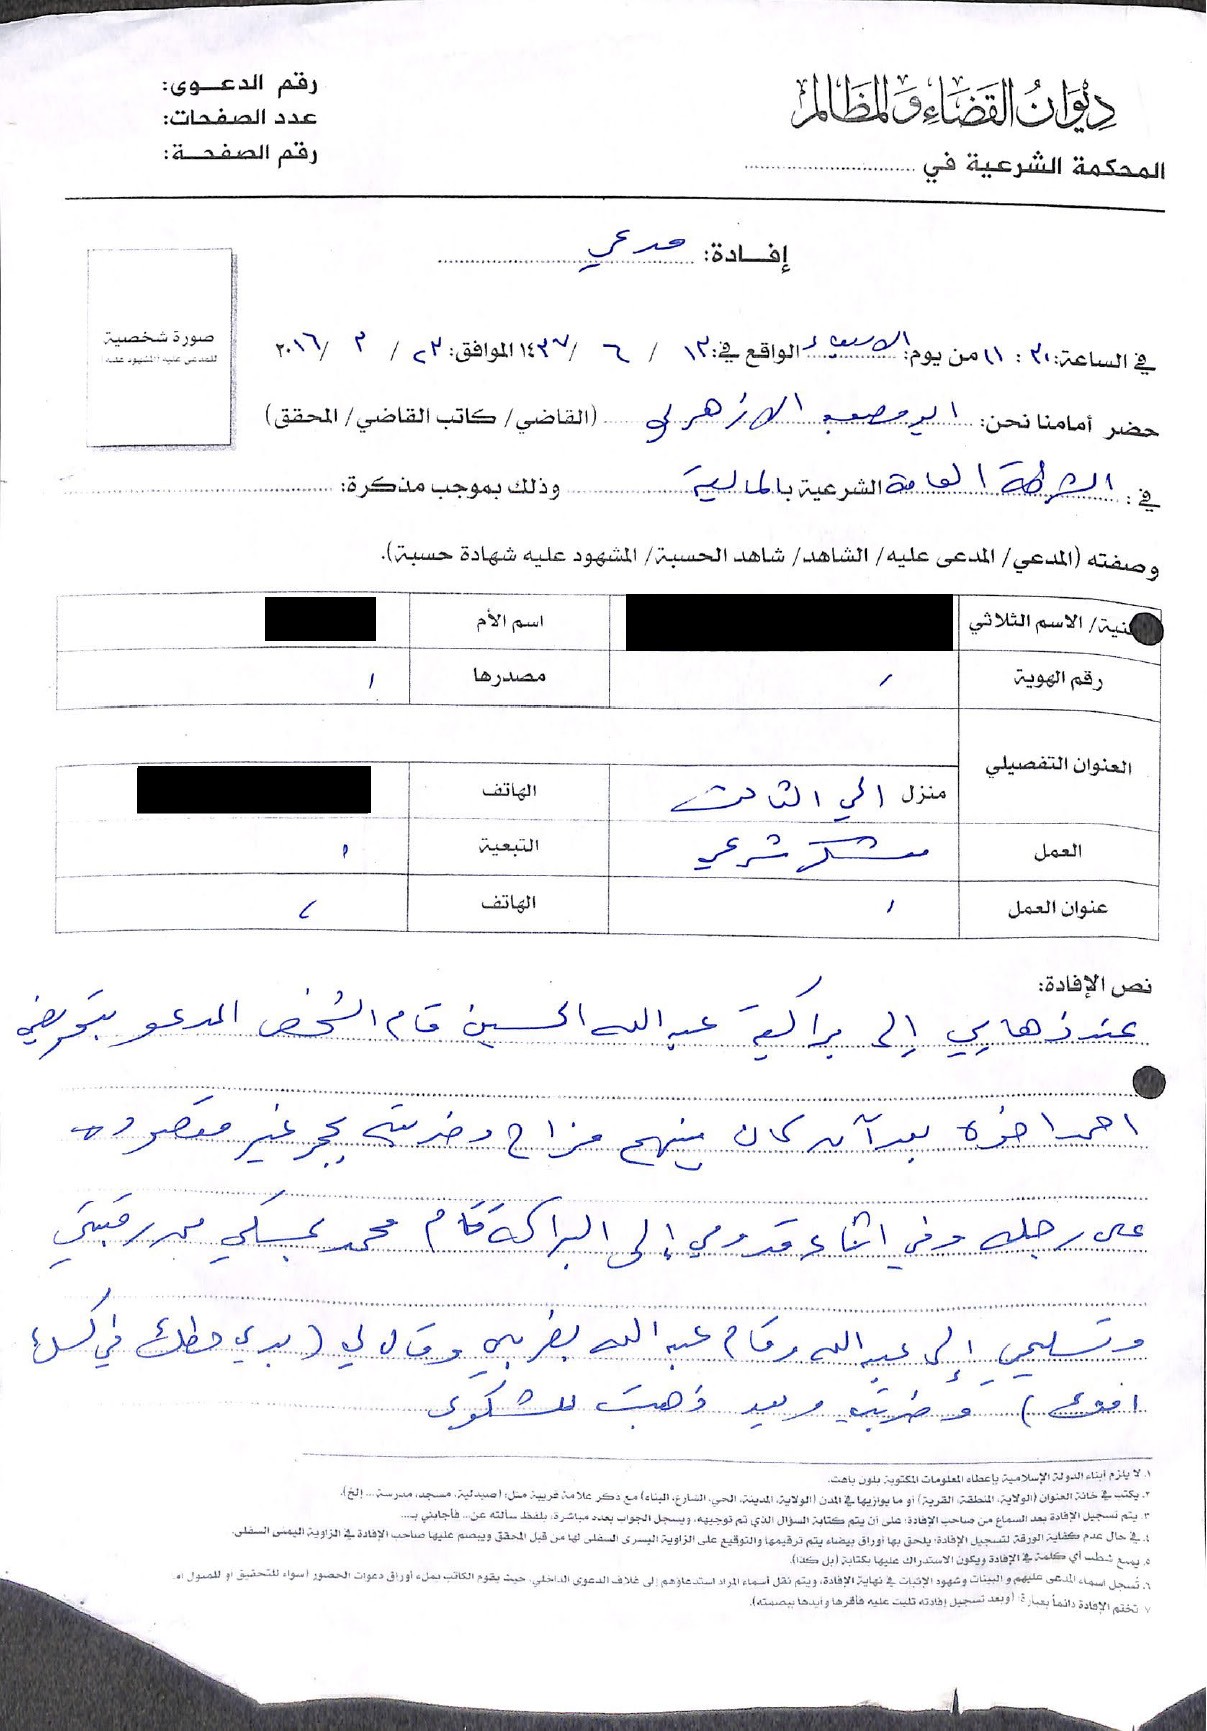 ديوان القضاء والمظالم
المحكمة الشرعية في
رقم الدعوى:
عدد الصفحات:
رقم الصفحة:
إفادة: مدعي
صورة شخصية
للمدعى عليه المشهود عليه
في الساعة: ٣٠ : ١١ من يوم: الاربعاء الواقع في: ١٣ / ٦ / ١٤٣٧ الموافق: ٢٣ / ٣ / ٢٠١٦
حضر أمامنا نحن: ابو مصعب الازهري (القاضي/ كاتب القاضي/ المحقق)
في: الشرطة العامة الشرعية بالمالية وذلك بموجب مذكرة:
وصفته (المدعي/ المدعى عليه/ الشاهد/ شاهد الحسبة/ المشهود عليه شهادة حسبة).
نية/ الاسم الثلاثي
اسم الأم
رقم الهوية
مصدرها
العنوان التفصيلي
منزل الحي الثالث
الهاتف
العمل
معسكر شرعي
التبعية
عنوان العمل
الهاتف
نص الإفادة:
عند ذهابي إلى براكية عبد الله الحسين قام الشخص المدعو بتحريض
احمد اخوه بعد أن كان بينهم مزاح وضربته بحجر غير مقصودة
على رجله وفي اثناء قدومي إلى البراكة قام محمد بمسكي من رقبتي
وتسليمي إلى عبد الله وقام عبد الله بضربي وقال لي (بدي حطك في كس
) وضربته وبعد ذهبت للشكوى
١. لا يلزم أبناء الدولة الإسلامية بإعطاء المعلومات المكتوبة بلون باهت.
٢. يكتب في خانة العنوان (الولاية، المنطقة، القرية) أو ما يوازيها في المدن (الولاية، المدينة، الحي، الشارع، البناء) مع ذكر علامة قريبة مثل: (صيدلية، مسجد، مدرسة... إلخ).
٣. يتم تسجيل الإفادة بعد السماع من صاحب الإفادة؛ على أن يتم كتابة السؤال الذي تم توجيهه، ويسجل الجواب بعده مباشرة، بلفظ سألته عن... فأجابني بـ...
٤. في حال عدم كفاية الورقة لتسجيل الإفادة؛ يلحق بها أوراق بيضاء يتم ترقيمها والتوقيع على الزاوية اليسرى السفلى لها من قبل المحقق ويبصم عليها صاحب الإفادة في الزاوية اليمنى السفلى.
٥. يمنع شطب أي كلمة في الإفادة ويكون الاستدراك عليها بكتابة (بل كذا).
٦. تُسجل أسماء المدعى عليهم و البينات وشهود الإثبات في نهاية الإفادة، ويتم نقل أسماء المراد استدعاؤهم إلى غلاف الدعوى الداخلي، حيث يقوم الكاتب بملء أوراق دعوات الحضور (سواء للتحقيق أو للمثول
٧. تختم الإفادة دائماً بعبارة: (وبعد تسجيل إفادته تليت عليه فأقرها وأيدها ببصمته).